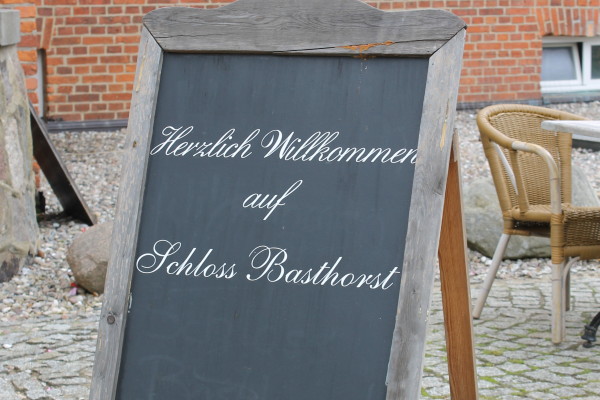 Herzlich Willkommen
auf
Schloss Basthorst